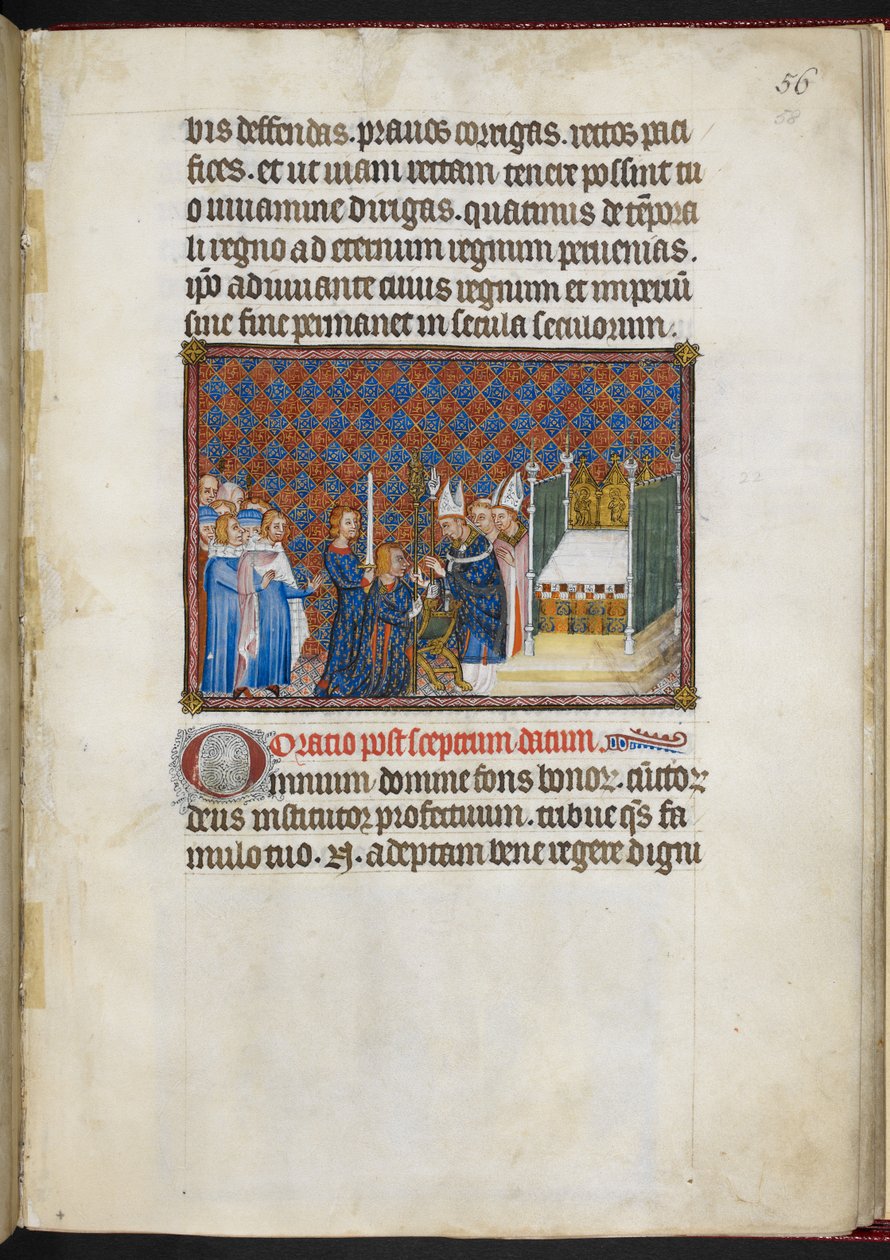 56
58
bis deffendas. prauos corrigas. rectos paci
fices. et ut uiam rectam tenere possint tu
o iuuamine dirigas. quatinus de te͞pora
li regno ad eternum regnum peruenias.
ip̅o adiuuante cuius regnum et imperiu͞
sine fine permanet in secula seculorum.
22
Oratio post sceptrum datum.
Omnium domine fons bonoꝝ. cu͞ctoꝝ
deus institutoꝝ profectuum. tribue q̅s fa
mulo tuo. N. adeptam bene regere digni